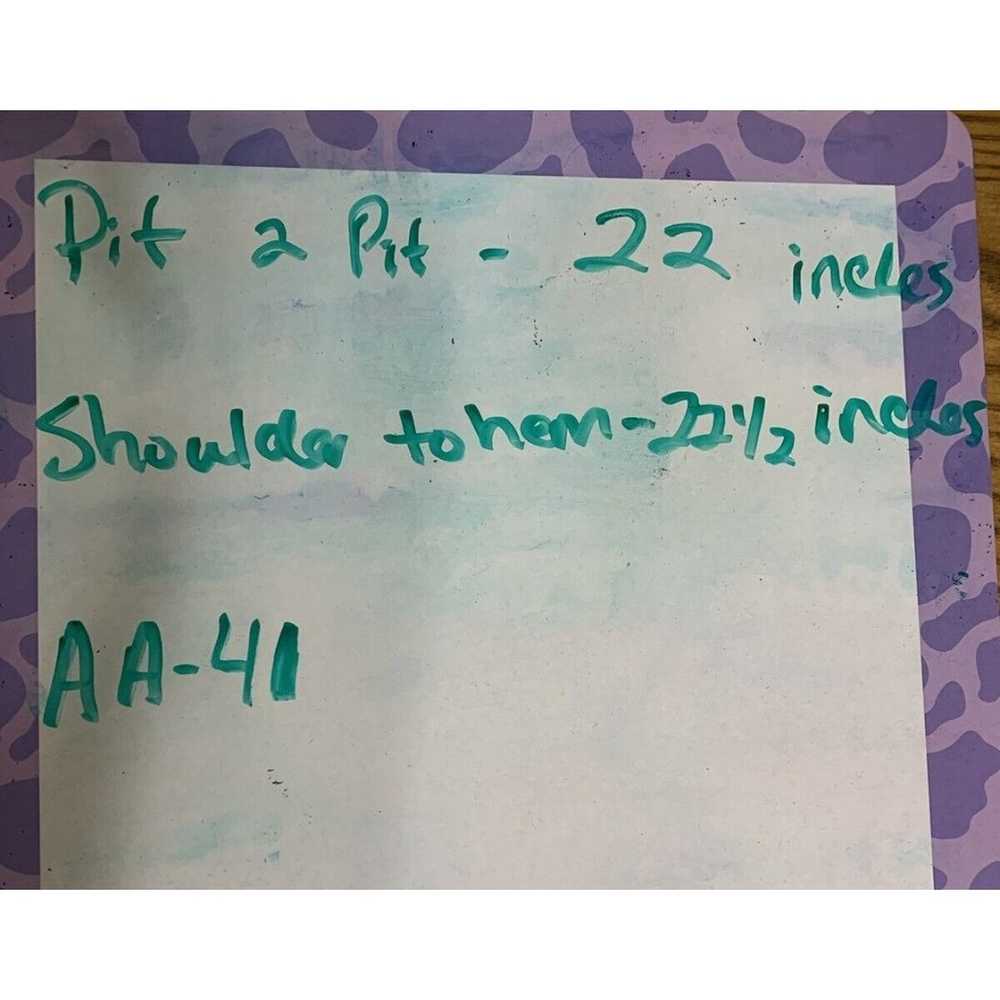 Pit 2 Pit - 22 inches
Shoulder to hem - 22 1/2 inches
AA-41